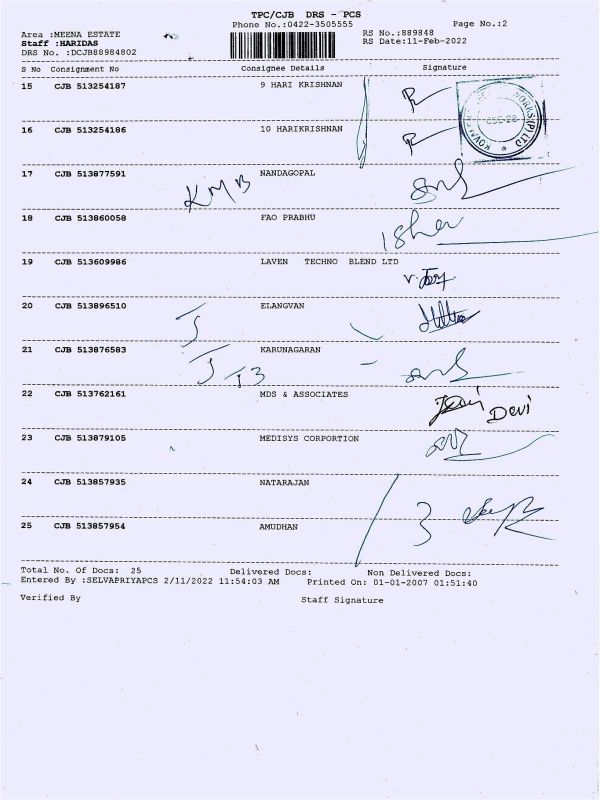 TPC/CJB DRS - PCS
Phone No.:0422-3505555
Page No.:2
Area :MEENA ESTATE
RS No.:889848
Staff :HARIDAS
RS Date:11-Feb-2022
DRS No. :DCJB88984802
S No Consignment No Consignee Details Signature
15 CJB 513254187 9 HARI KRISHNAN
16 CJB 513254186 10 HARIKRISHNAN
17 CJB 513877591 NANDAGOPAL
KMB
18 CJB 513860058 FAO PRABHU
19 CJB 513609986 LAVEN TECHNO BLEND LTD
20 CJB 513896510 ELANGVAN
21 CJB 513876583 KARUNAGARAN
22 CJB 513762161 MDS & ASSOCIATES
Devi
23 CJB 513879105 MEDISYS CORPORTION
24 CJB 513857935 NATARAJAN
3
25 CJB 513857954 AMUDHAN
Total No. Of Docs: 25 Delivered Docs: Non Delivered Docs:
Entered By :SELVAPRIYAPCS 2/11/2022 11:54:03 AM Printed On: 01-01-2007 01:51:40
Verified By Staff Signature